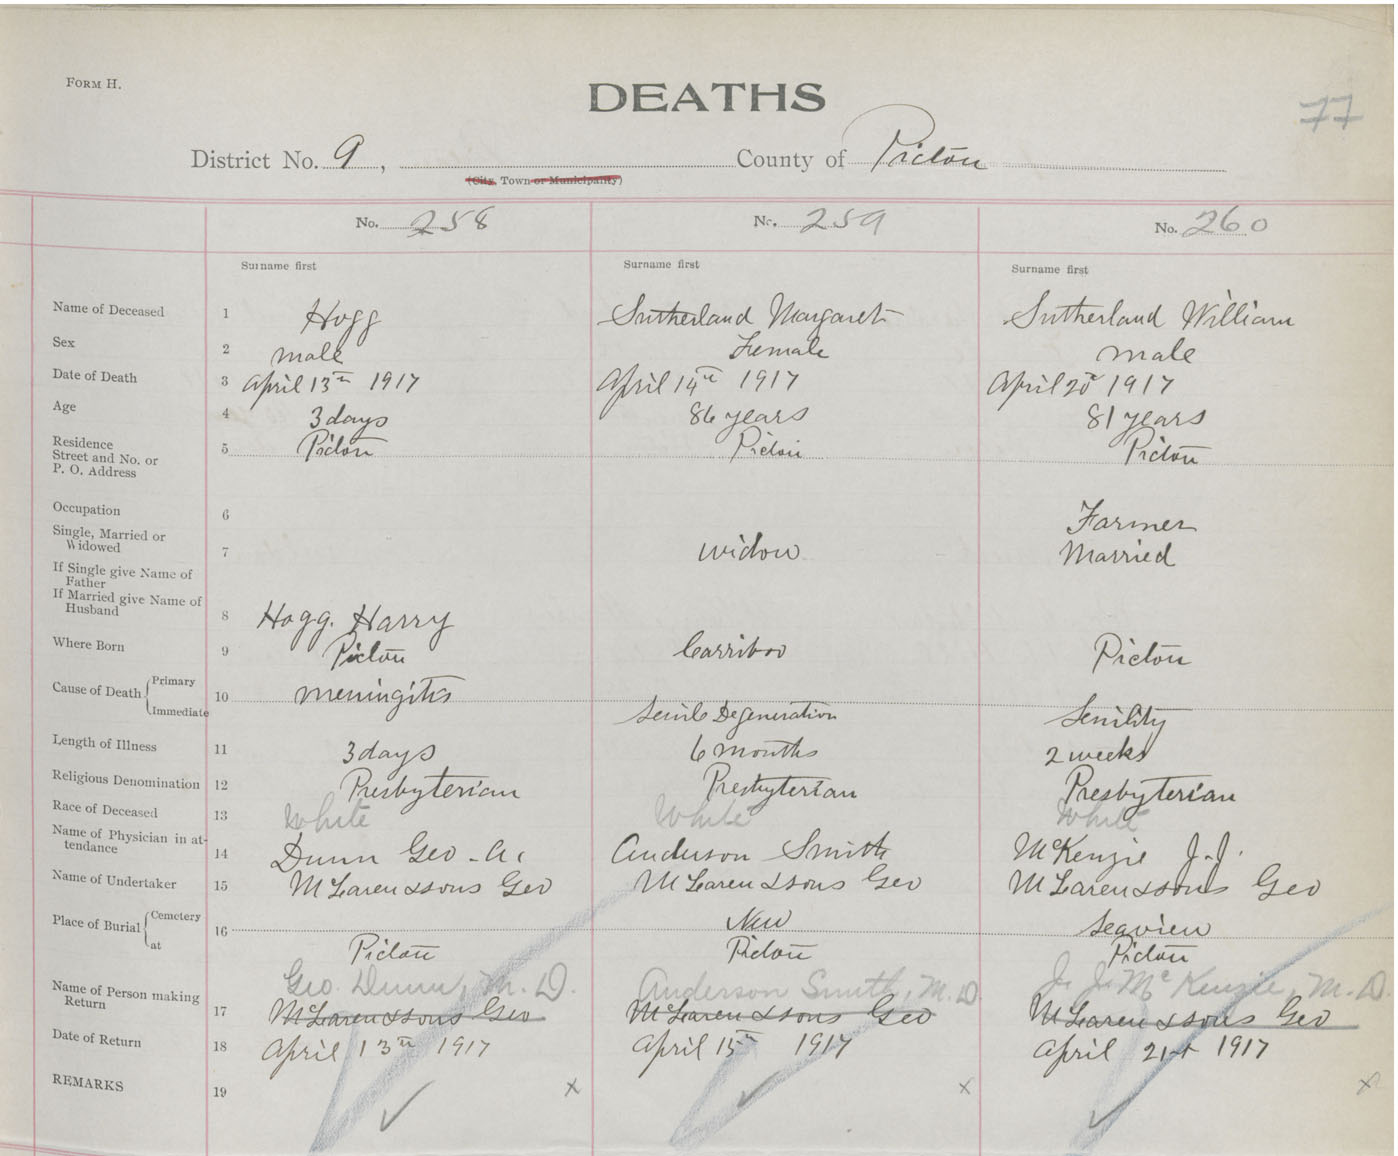 FORM H.
DEATHS
77
District No. 9, County of Pictou
(City, Town or Municipality)
No. 258 No. 259 No. 260
Surname first Surname first Surname first
Name of Deceased 1 Hogg Sutherland Margaret Sutherland William
Sex 2 male Female male
Date of Death 3 April 13th 1917 April 14th 1917 April 20 1917
Age 4 3 days 86 years 81 years
Residence
Street and No. or
P. O. Address 5 Pictou Pictou Pictou
Occupation 6 Farmer
Single, Married or
Widowed 7 widow Married
If Single give Name of
Father
If Married give Name of
Husband 8 Hogg. Harry
Where Born 9 Pictou Carriboo Pictou
Cause of Death Primary
10 meningitis
Immediate Senile Degeneration Senility
Length of Illness 11 3 days 6 months 2 weeks
Religious Denomination 12 Presbyterian Presbyterian Presbyterian
Race of Deceased 13 White White White
Name of Physician in at-
tendance 14 Dunn Geo. A. Anderson Smith McKenzie J.J.
Name of Undertaker 15 McLaren & sons Geo McLaren & sons Geo McLaren & sons Geo
Place of Burial Cemetery 16 New Seaview
at Pictou Pictou Pictou
Geo. Dunn, M.D. Anderson Smith, M.D. J. J. McKenzie, M.D.
Name of Person making
Return 17 McLaren & sons Geo McLaren & sons Geo McLaren & sons Geo
Date of Return 18 April 13th 1917 April 15th 1917 April 21st 1917
REMARKS 19 x x x